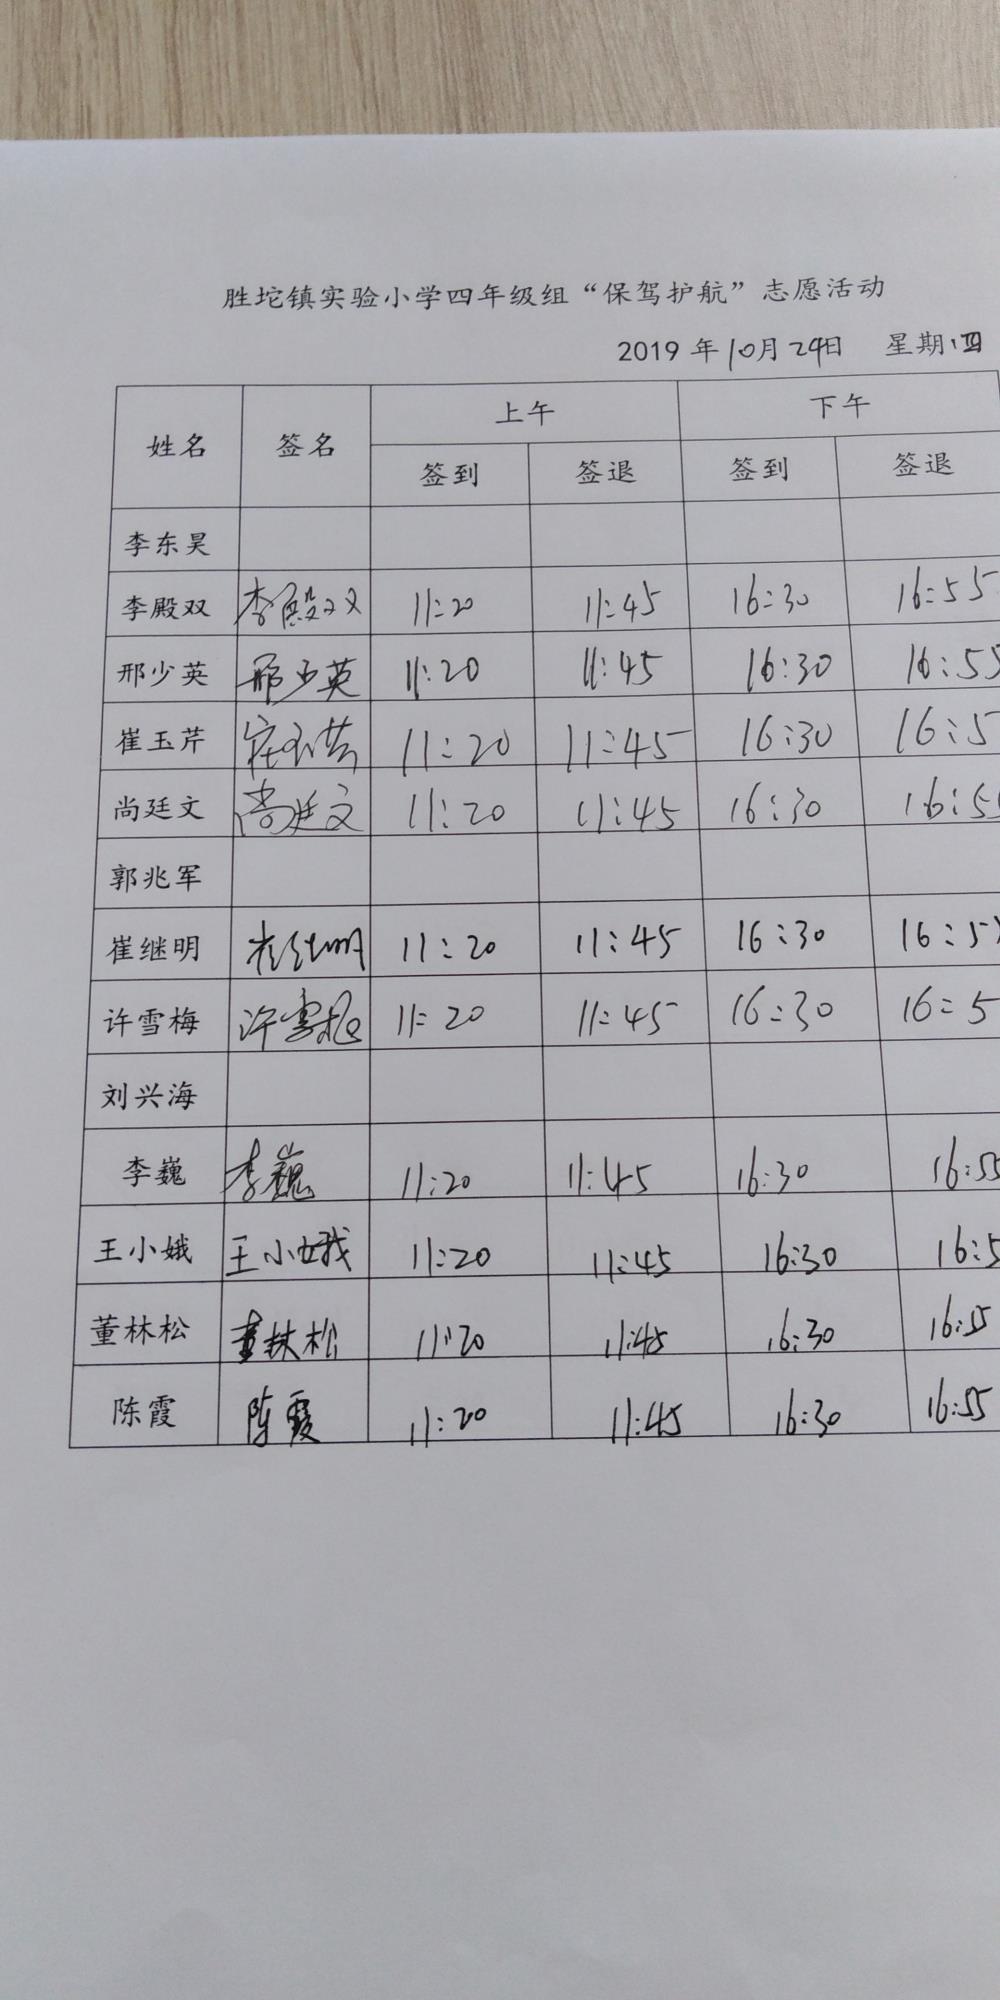 胜坨镇实验小学四年级组“保驾护航”志愿活动
2019 年 10月 24日 星期四
姓名 签名 上午 下午
签到 签退 签到 签退
李东昊
李殿双 李殿双 11:20 11:45 16:30 16:55
邢少英 邢少英 11:20 11:45 16:30 16:55
崔玉芹 崔玉芹 11:20 11:45 16:30 16:5
尚廷文 尚廷文 11:20 11:45 16:30 16:55
郭兆军
崔继明 崔继明 11:20 11:45 16:30 16:55
许雪梅 许雪梅 11:20 11:45 16:30 16:5
刘兴海
李巍 李巍 11:20 11:45 16:30 16:55
王小娥 王小娥 11:20 11:45 16:30 16:5
董林松 董林松 11:20 11:45 16:30 16:55
陈霞 陈霞 11:20 11:45 16:30 16:55